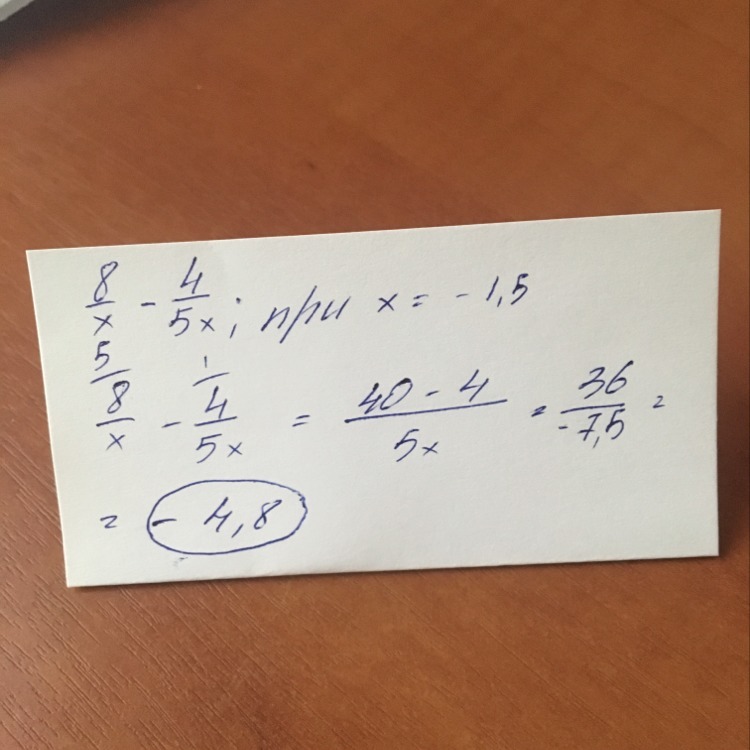 8/x - 4/5x; при x = -1,5
5/ 8/x - 1/ 4/5x = 40 - 4/5x = 36/-7,5 =
= - 4,8